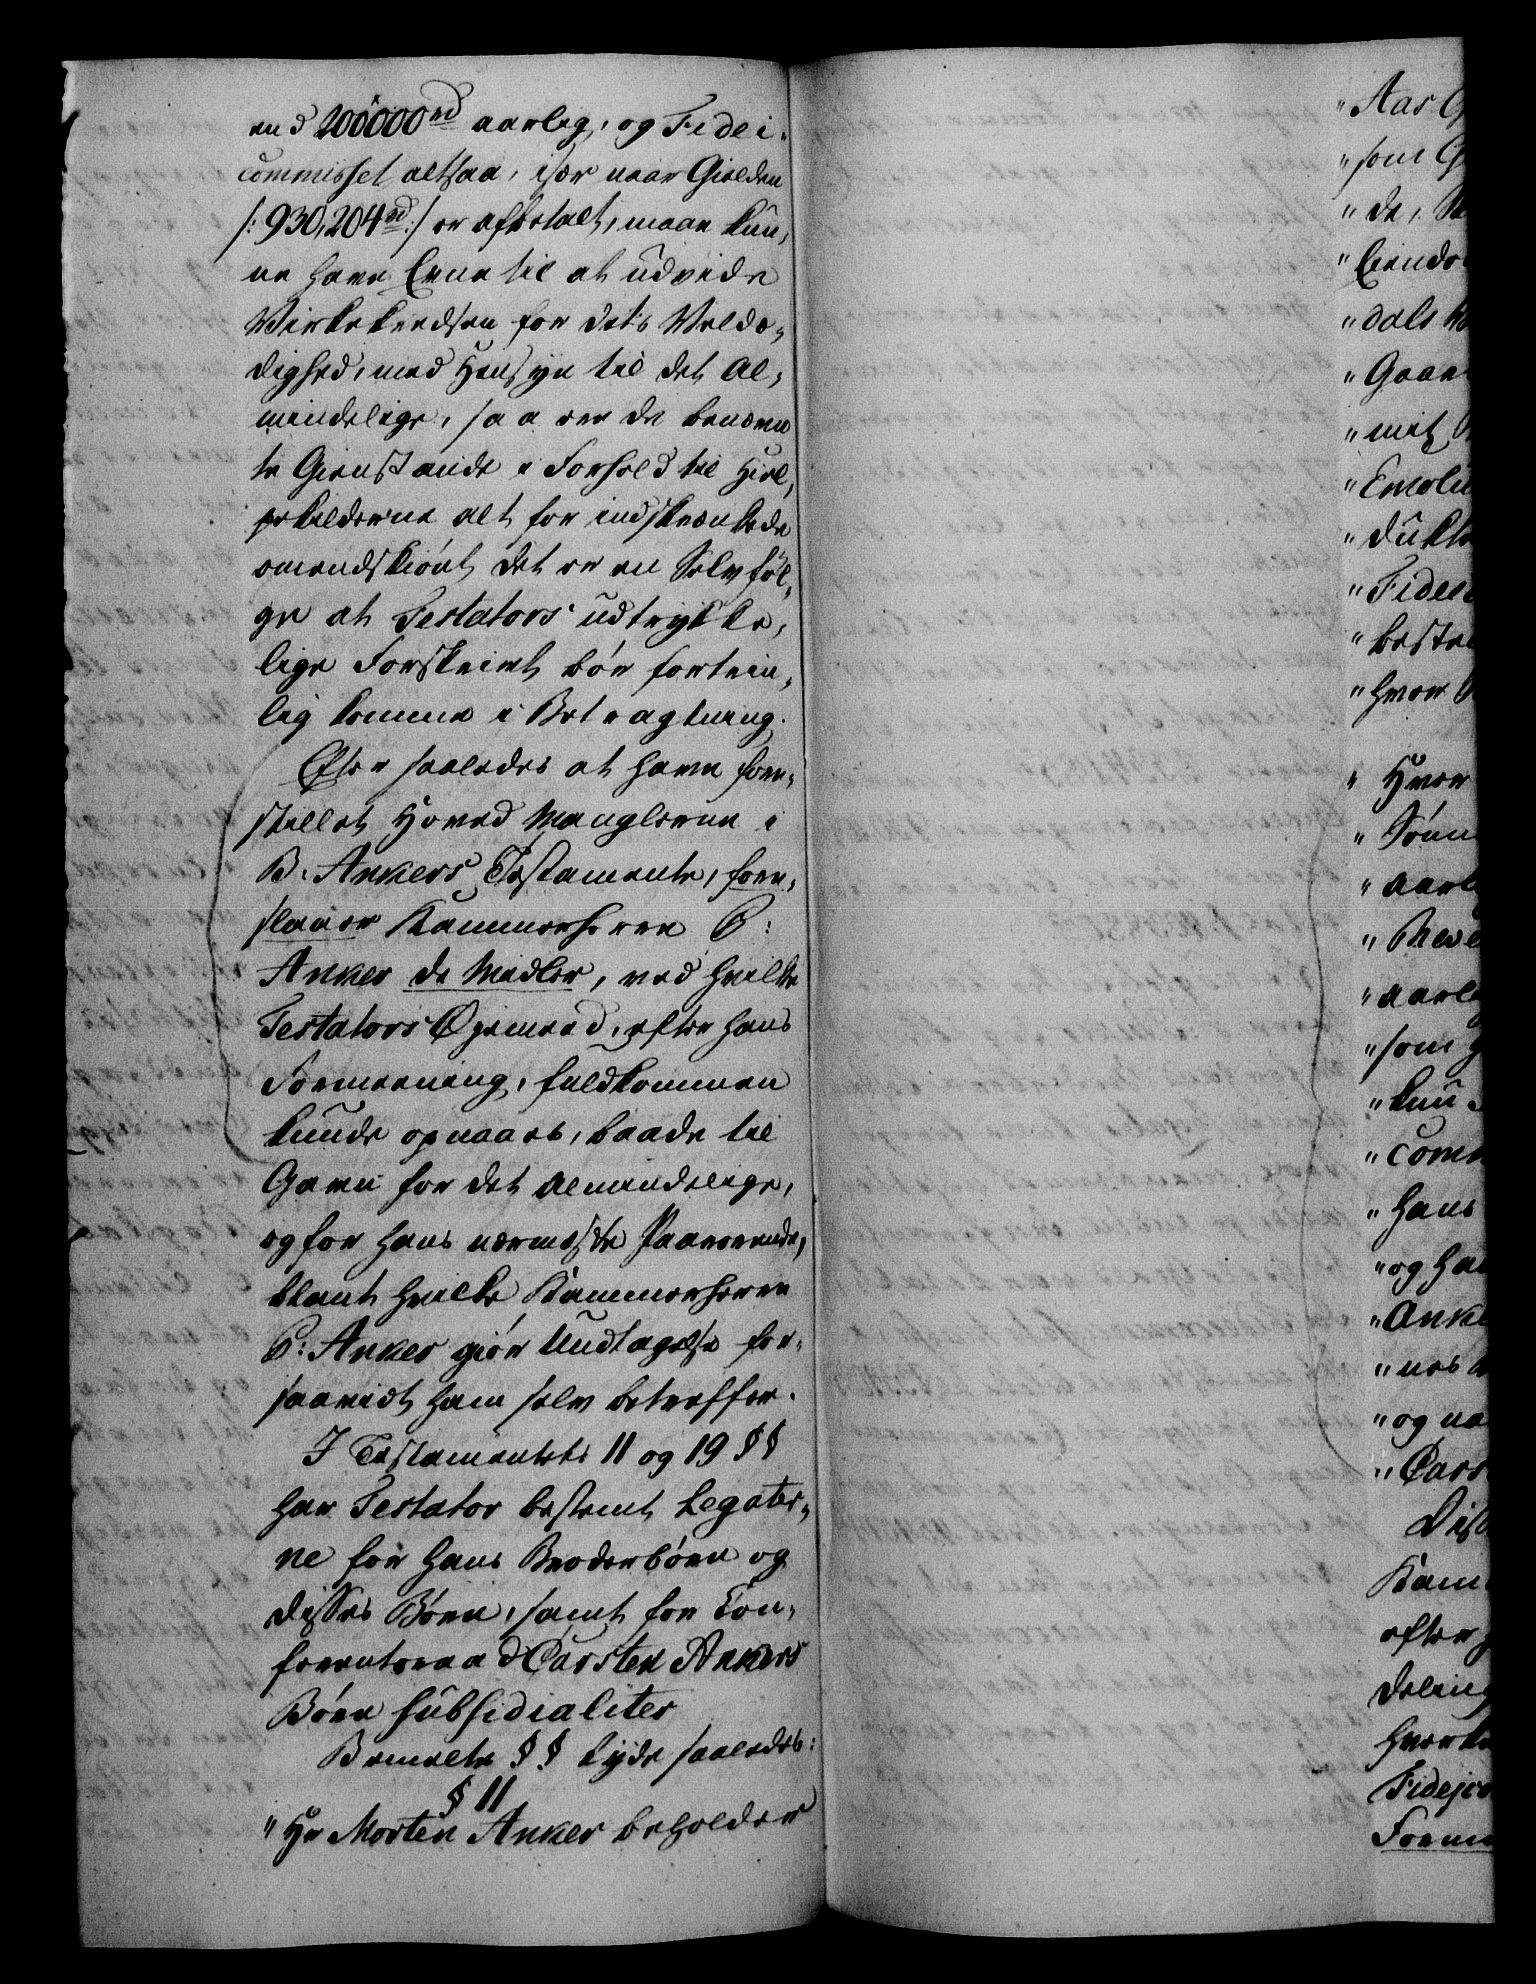 end 200000rd aarlig, og Fidei-
commisset altsaa, især naar Gielden
/: 930,204rd :/ er afbetalt, maae kun-
ne have Evne til at udvide
Virkekredsen for dets Veldæ-
dighed, med Hensyn til det Al-
mindelige, saa ere de benævn
te Gienstande i Forhold til Hiel-
pekilderne alt for indskrænkede
omendskiönt det er en Selvföl-
ge at Testators udtrykke-
lige Forskrivt bör fortrin-
lig komme i Betragtning.
Efter saaledes at have fore-
stillet Hoved Manglerne i
B. Ankers Testamente, fore-
slaaer Kammerherre P:
Anker de Midler, ved hvilke
Testators Öjemeed, efter hans
Formeening, fuldkommen
kunde opnaaes, baade til
Gavn for det Almindelige,
og for hans nærmeste Paarørende,
blant hvilke Kammerherre
P: Anker giör Undtagelse for-
saavidt ham selv betreffer.
I Testamentets 11 og 19 §§
har Testator bestemt Legater-
ne for hans Broderbörn og
disses Börn, samt for Con-
ferentsraad Carsten Ankers
Börn subsidialiter
Bemelte §§ lyde saaledes:
§ 11
" Hr Morten Anker beholder
" Aas G
" som G
" de,
" Eiendo
" dals
" Gaar
" mit
" Emolu
" dukte
" Fideic
" beste
" hver
" Hver
" Sönn
" aarl
" Neve
" aarl
" som
" kun
" com
" hans
" og ha
" Anke
" nes
" og na
" Cars
Diss
Kam
efter
deling
hverke
Fideico
Forme